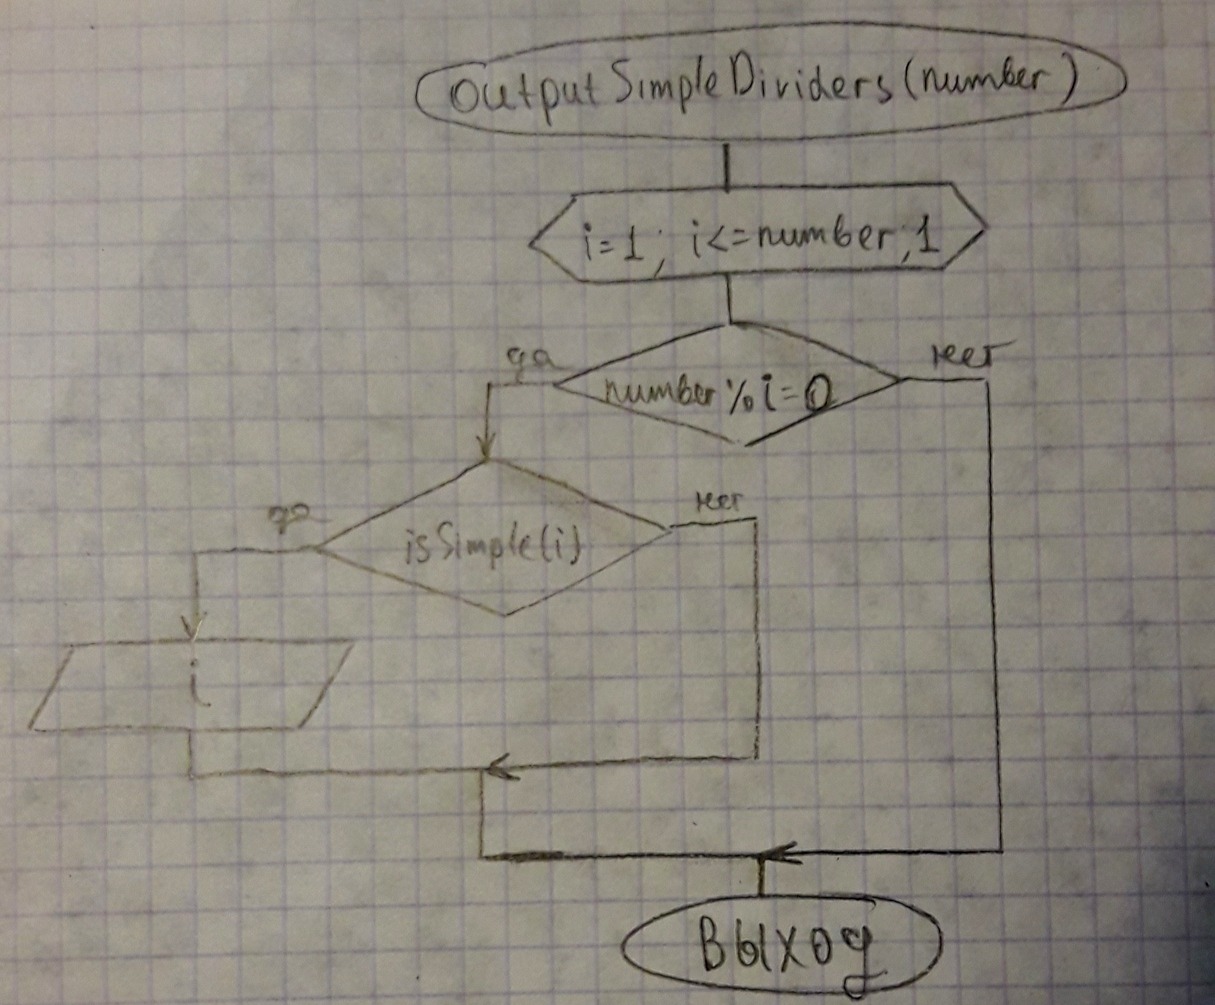 OutputSimpleDividers(number)
i=1; i<=number; 1
да
нет
number % i=0
да
нет
isSimple(i)
i
Выход